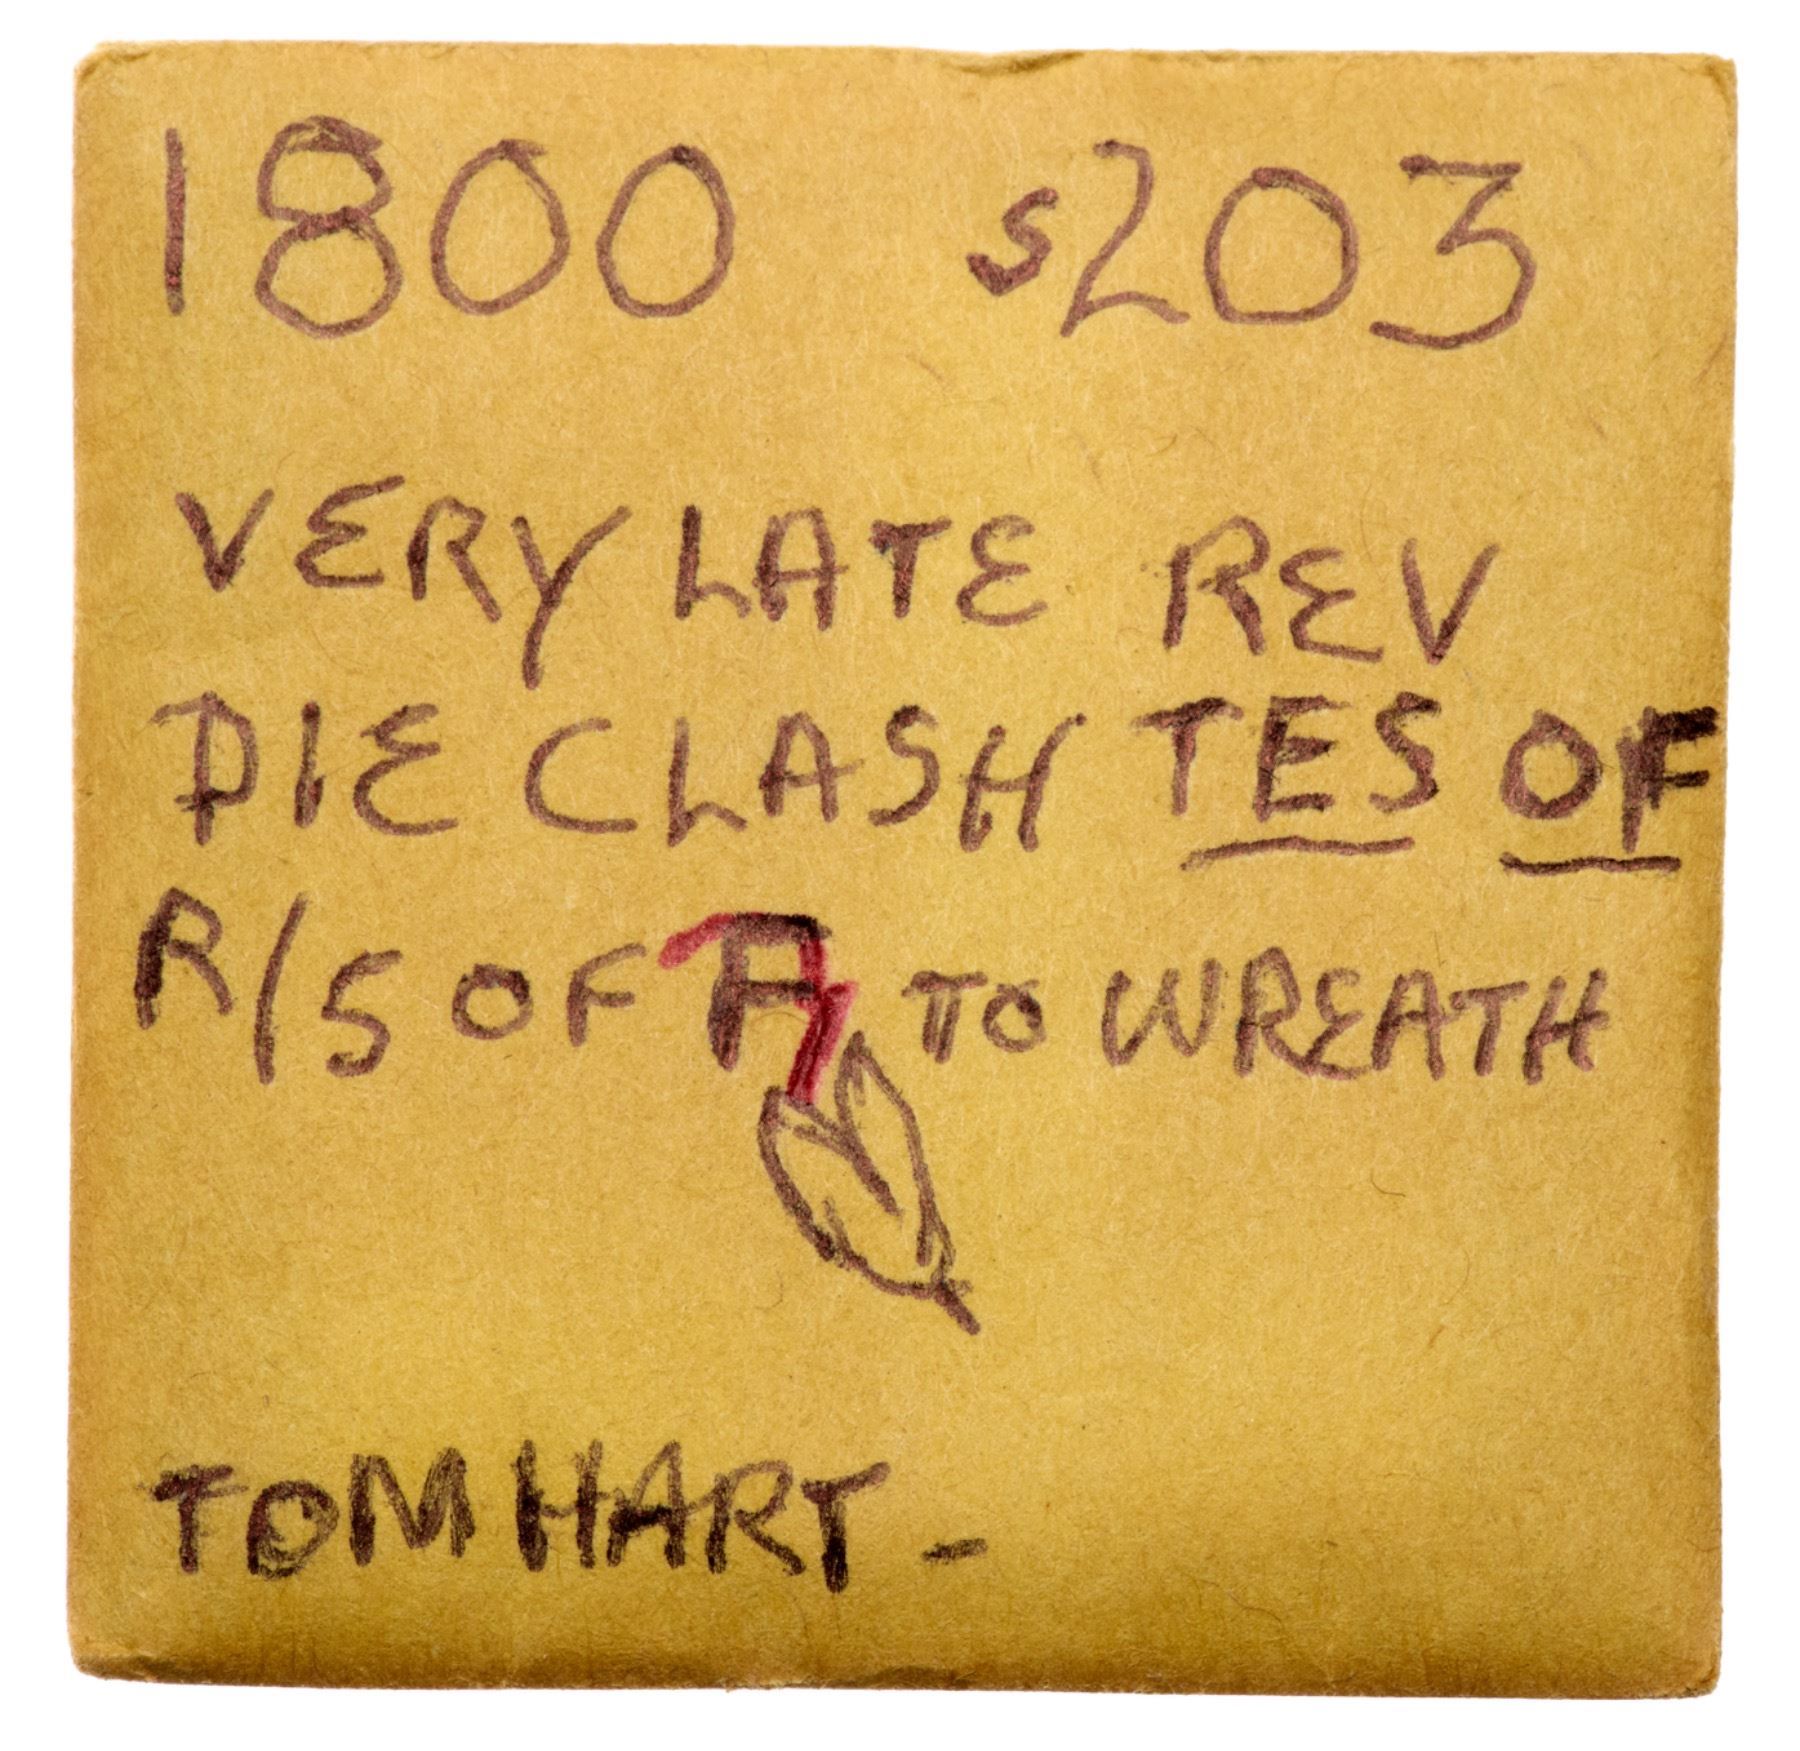 1800 S203
VERY LATE REV
DIE CLASH TES OF
R/S OF A TO WREATH
TOM HART -